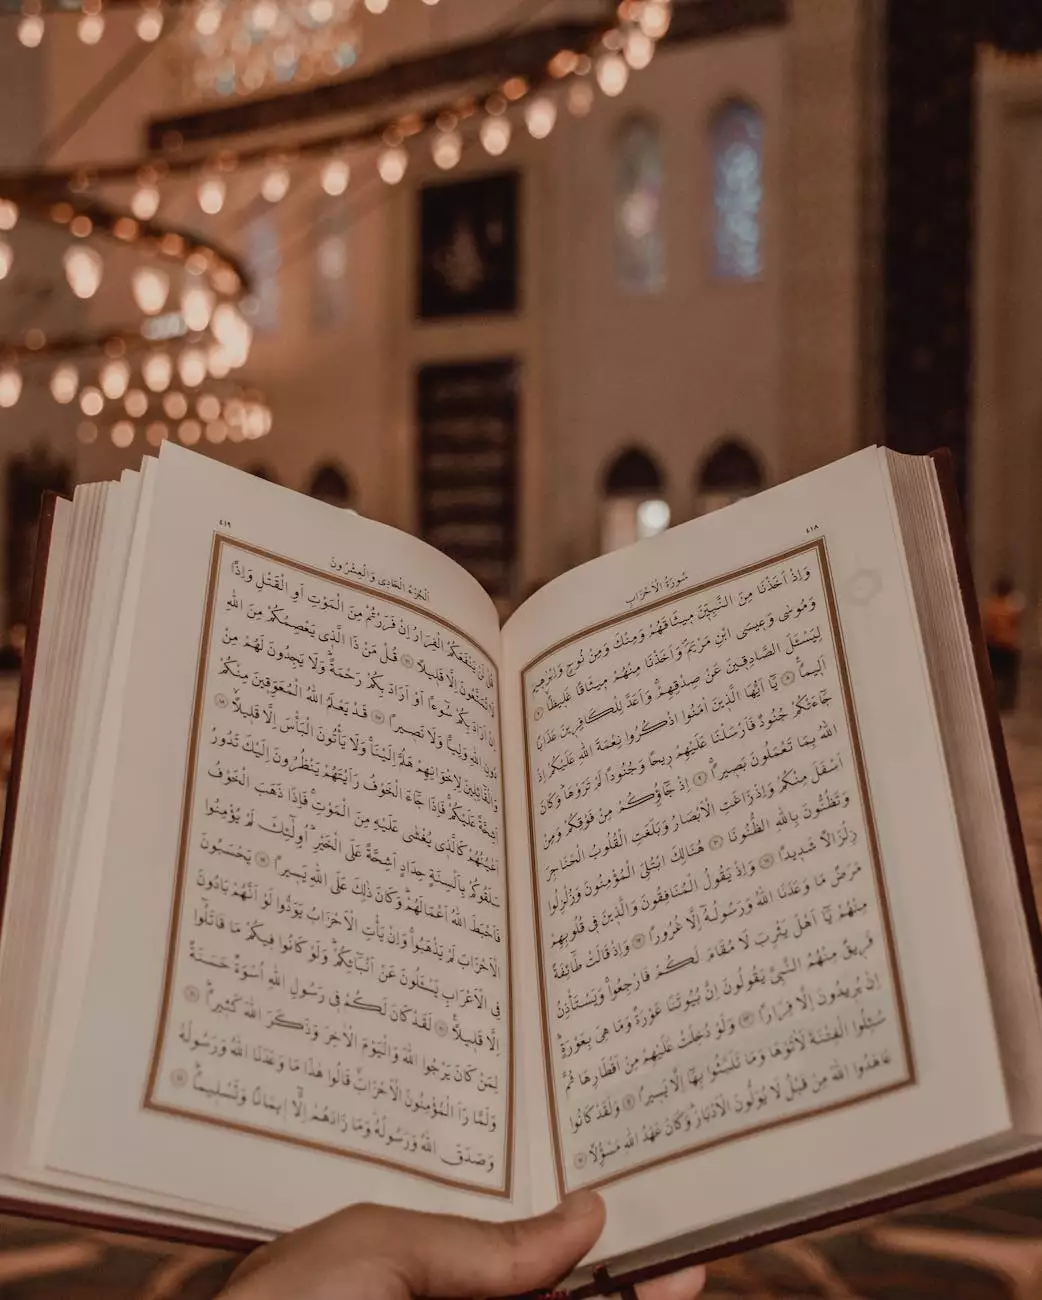 ٤١٨
سُورَةُ الْاَحْزَابِ
وَاِذْ اَخَذْنَا مِنَ النَّبِيّٖنَ مٖيثَاقَهُمْ وَمِنْكَ وَمِنْ نُوحٍ وَاِبْرٰهٖيمَ
وَمُوسٰى وَعٖيسَى ابْنِ مَرْيَمَ وَاَخَذْنَا مِنْهُمْ مٖيثَاقًا غَلٖيظًا ﴿٧﴾
لِيَسْـَٔلَ الصَّادِقٖينَ عَنْ صِدْقِهِمْ وَاَعَدَّ لِلْكَافِرٖينَ عَذَابًا
اَلٖيمًا ﴿٨﴾ يَٓا اَيُّهَا الَّذٖينَ اٰمَنُوا اذْكُرُوا نِعْمَةَ اللّٰهِ عَلَيْكُمْ اِذْ
جَٓاءَتْكُمْ جُنُودٌ فَاَرْسَلْنَا عَلَيْهِمْ رٖيحًا وَجُنُودًا لَمْ تَرَوْهَا وَكَانَ
اللّٰهُ بِمَا تَعْمَلُونَ بَصٖيرًا ﴿٩﴾ اِذْ جَٓاؤُ۫كُمْ مِنْ فَوْقِكُمْ وَمِنْ
اَسْفَلَ مِنْكُمْ وَاِذْ زَاغَتِ الْاَبْصَارُ وَبَلَغَتِ الْقُلُوبُ الْحَنَاجِرَ
وَتَظُنُّونَ بِاللّٰهِ الظُّنُونَا ﴿١٠﴾ هُنَالِكَ ابْتُلِيَ الْمُؤْمِنُونَ وَزُلْزِلُوا
زِلْزَالًا شَدٖيدًا ﴿١١﴾ وَاِذْ يَقُولُ الْمُنَافِقُونَ وَالَّذٖينَ فٖي قُلُوبِهِمْ
مَرَضٌ مَا وَعَدَنَا اللّٰهُ وَرَسُولُهُٓ اِلَّا غُرُورًا ﴿١٢﴾ وَاِذْ قَالَتْ طَٓائِفَةٌ
مِنْهُمْ يَٓا اَهْلَ يَثْرِبَ لَا مُقَامَ لَكُمْ فَارْجِعُوا وَيَسْتَأْذِنُ
فَرٖيقٌ مِنْهُمُ النَّبِيَّ يَقُولُونَ اِنَّ بُيُوتَنَا عَوْرَةٌ وَمَا هِيَ بِعَوْرَةٍ
اِنْ يُرٖيدُونَ اِلَّا فِرَارًا ﴿١٣﴾ وَلَوْ دُخِلَتْ عَلَيْهِمْ مِنْ اَقْطَارِهَا ثُمَّ
سُئِلُوا الْفِتْنَةَ لَاٰتَوْهَا وَمَا تَلَبَّثُوا بِهَٓا اِلَّا يَسٖيرًا ﴿١٤﴾ وَلَقَدْ كَانُوا
عَاهَدُوا اللّٰهَ مِنْ قَبْلُ لَا يُوَلُّونَ الْاَدْبَارَ وَكَانَ عَهْدُ اللّٰهِ مَسْؤُ۫لًا ﴿١٥﴾
٤١٩
اَلْجُزْءُ الْحَادٖي وَالْعِشْرُونَ
قُلْ لَنْ يَنْفَعَكُمُ الْفِرَارُ اِنْ فَرَرْتُمْ مِنَ الْمَوْتِ اَوِ الْقَتْلِ وَاِذًا
لَا تُمَتَّعُونَ اِلَّا قَلٖيلًا ﴿١٦﴾ قُلْ مَنْ ذَا الَّذٖي يَعْصِمُكُمْ مِنَ اللّٰهِ
اِنْ اَرَادَ بِكُمْ سُٓوءًا اَوْ اَرَادَ بِكُمْ رَحْمَةً وَلَا يَجِدُونَ لَهُمْ مِنْ
دُونِ اللّٰهِ وَلِيًّا وَلَا نَصٖيرًا ﴿١٧﴾ قَدْ يَعْلَمُ اللّٰهُ الْمُعَوِّقٖينَ مِنْكُمْ
وَالْقَٓائِلٖينَ لِاِخْوَانِهِمْ هَلُمَّ اِلَيْنَا وَلَا يَأْتُونَ الْبَأْسَ اِلَّا قَلٖيلًا ﴿١٨﴾
اَشِحَّةً عَلَيْكُمْ فَاِذَا جَٓاءَ الْخَوْفُ رَاَيْتَهُمْ يَنْظُرُونَ اِلَيْكَ تَدُورُ
اَعْيُنُهُمْ كَالَّذٖي يُغْشٰى عَلَيْهِ مِنَ الْمَوْتِ فَاِذَا ذَهَبَ الْخَوْفُ
سَلَقُوكُمْ بِاَلْسِنَةٍ حِدَادٍ اَشِحَّةً عَلَى الْخَيْرِ اُو۬لٰٓئِكَ لَمْ يُؤْمِنُوا
فَاَحْبَطَ اللّٰهُ اَعْمَالَهُمْ وَكَانَ ذٰلِكَ عَلَى اللّٰهِ يَسٖيرًا ﴿١٩﴾ يَحْسَبُونَ
الْاَحْزَابَ لَمْ يَذْهَبُوا وَاِنْ يَأْتِ الْاَحْزَابُ يَوَدُّوا لَوْ اَنَّهُمْ بَادُونَ
فِي الْاَعْرَابِ يَسْـَٔلُونَ عَنْ اَنْبَٓائِكُمْ وَلَوْ كَانُوا فٖيكُمْ مَا قَاتَلُٓوا
اِلَّا قَلٖيلًا ﴿٢٠﴾ لَقَدْ كَانَ لَكُمْ فٖي رَسُولِ اللّٰهِ اُسْوَةٌ حَسَنَةٌ
لِمَنْ كَانَ يَرْجُوا اللّٰهَ وَالْيَوْمَ الْاٰخِرَ وَذَكَرَ اللّٰهَ كَثٖيرًا ﴿٢١﴾
وَلَمَّا رَاَ الْمُؤْمِنُونَ الْاَحْزَابَ قَالُوا هٰذَا مَا وَعَدَنَا اللّٰهُ وَرَسُولُهُ
وَصَدَقَ اللّٰهُ وَرَسُولُهُ وَمَا زَادَهُمْ اِلَّٓا اٖيمَانًا وَتَسْلٖيمًا ﴿٢٢﴾